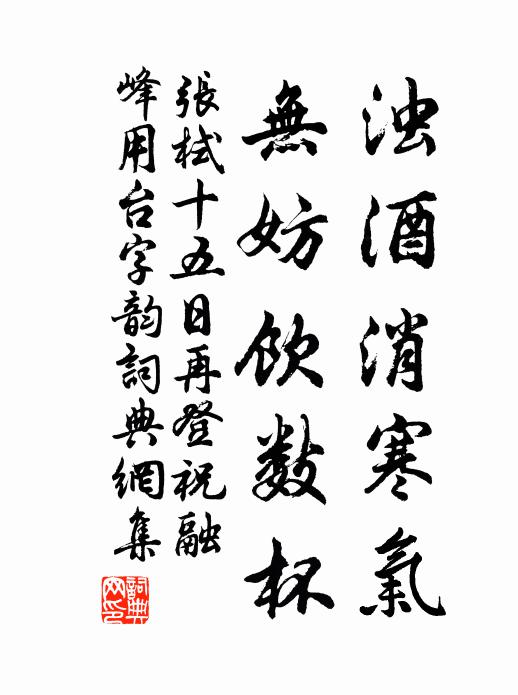 浊酒消寒氣
無妨飲數杯
張栻十五日再登祝融
峰用台字韵詞典網集
詞典網印